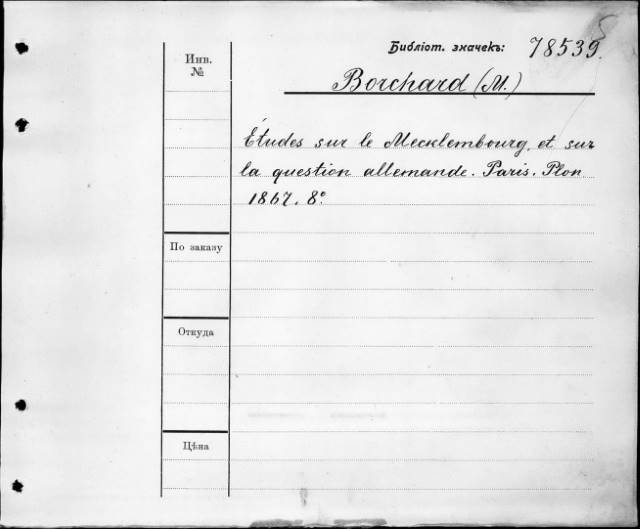 Библіот. значекъ: 78539
Инв.
№
Borchard (M.)
Études sur le Mecklembourg, et sur
la question allemande. Paris. Plon
1867. 8º
По заказу
Откуда
Цѣна